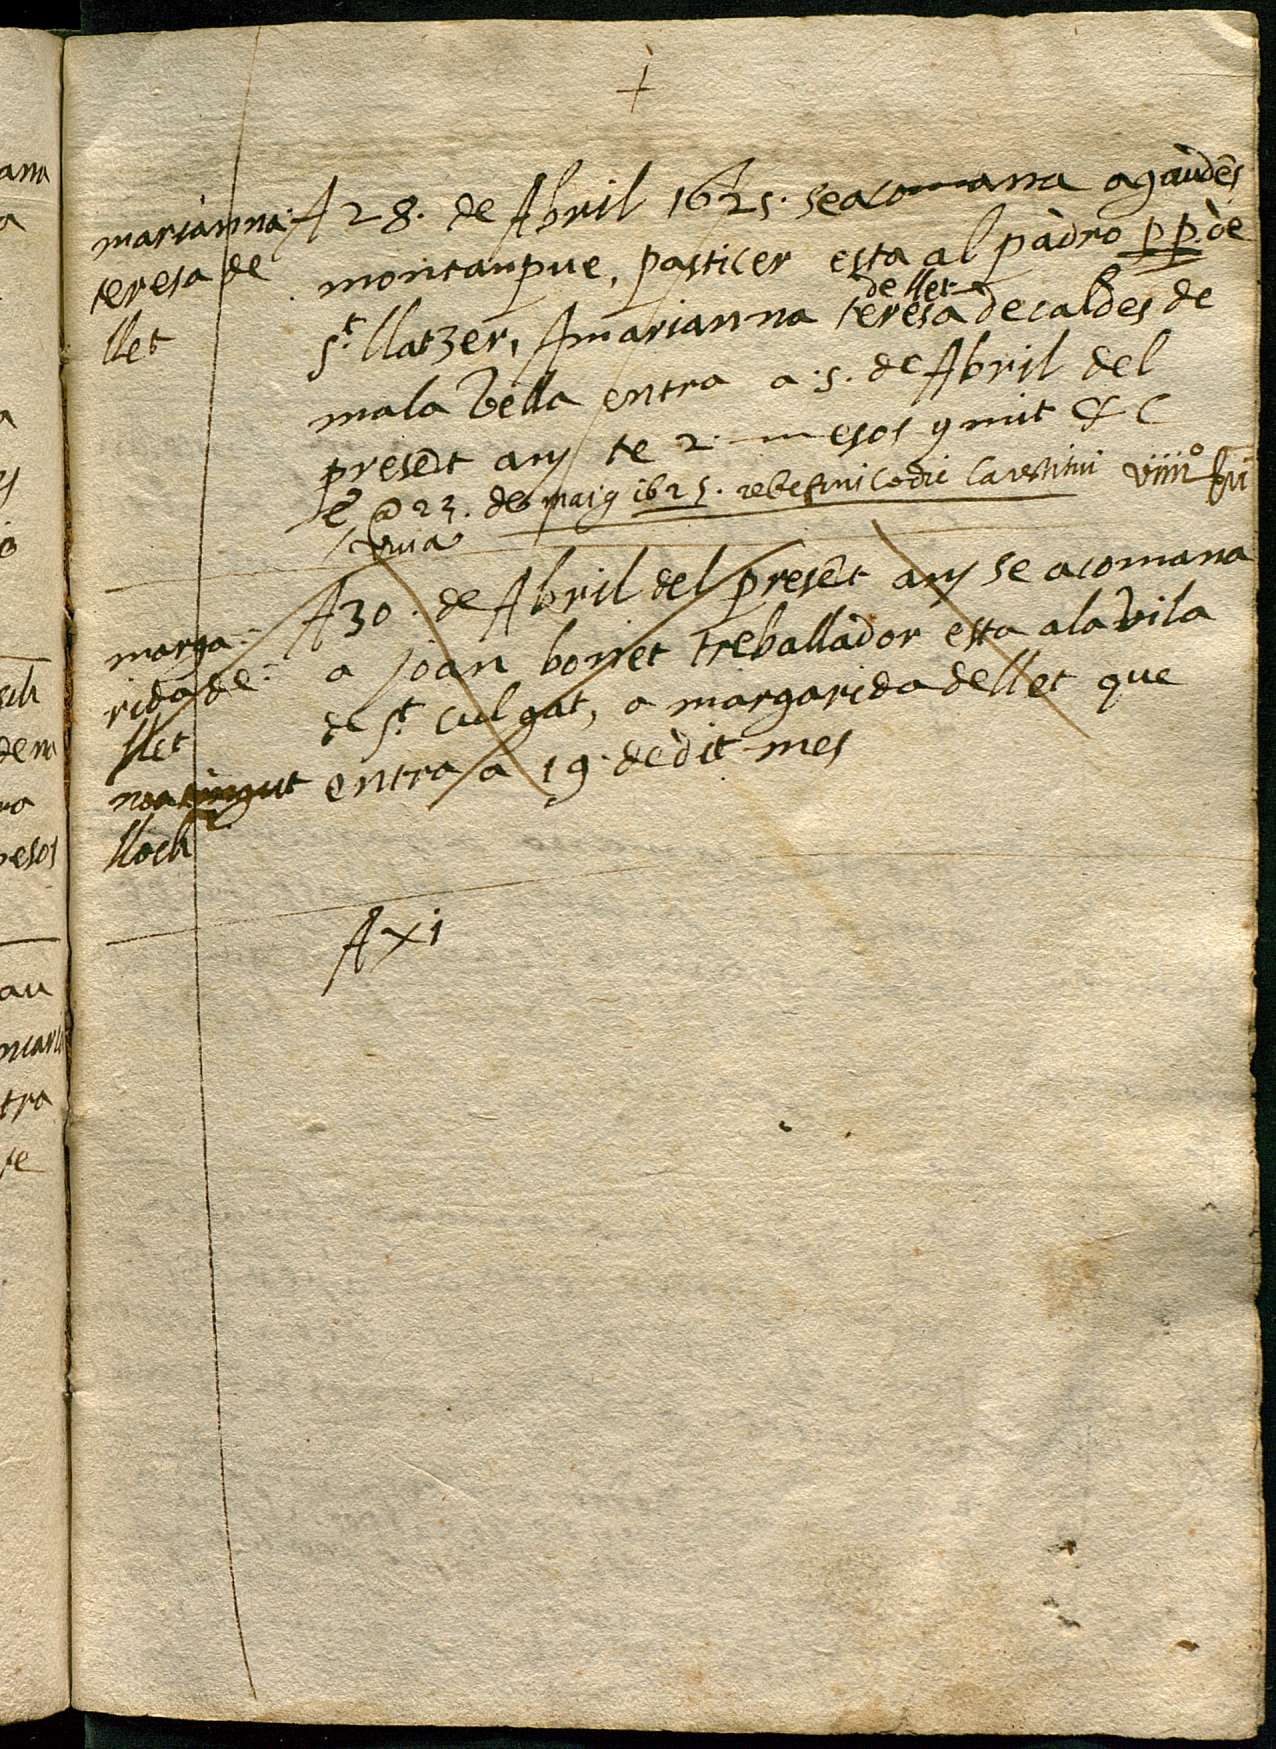 +
marianna
teresa de
llet
A 28. de Abril 1625. se acomana a gaudēs
montanpue, pasticer esta al pàdro p p. de
St. llatzer, A marianna teresa de llet de caldes de
mala vella entra a 5. de Abril del
presēt any te 2 mesos y mit & C
@ 23. de maig 1625. rebe fini la restitui viiij
viva
marga
rida de
llet
no a tingut
lloch
A 30. de Abril del presēt any se acomana
a joan bonet treballàdor esta a la vila
de St. culgat, a margarida de llet que
entra a 19. de dit mes
A x i